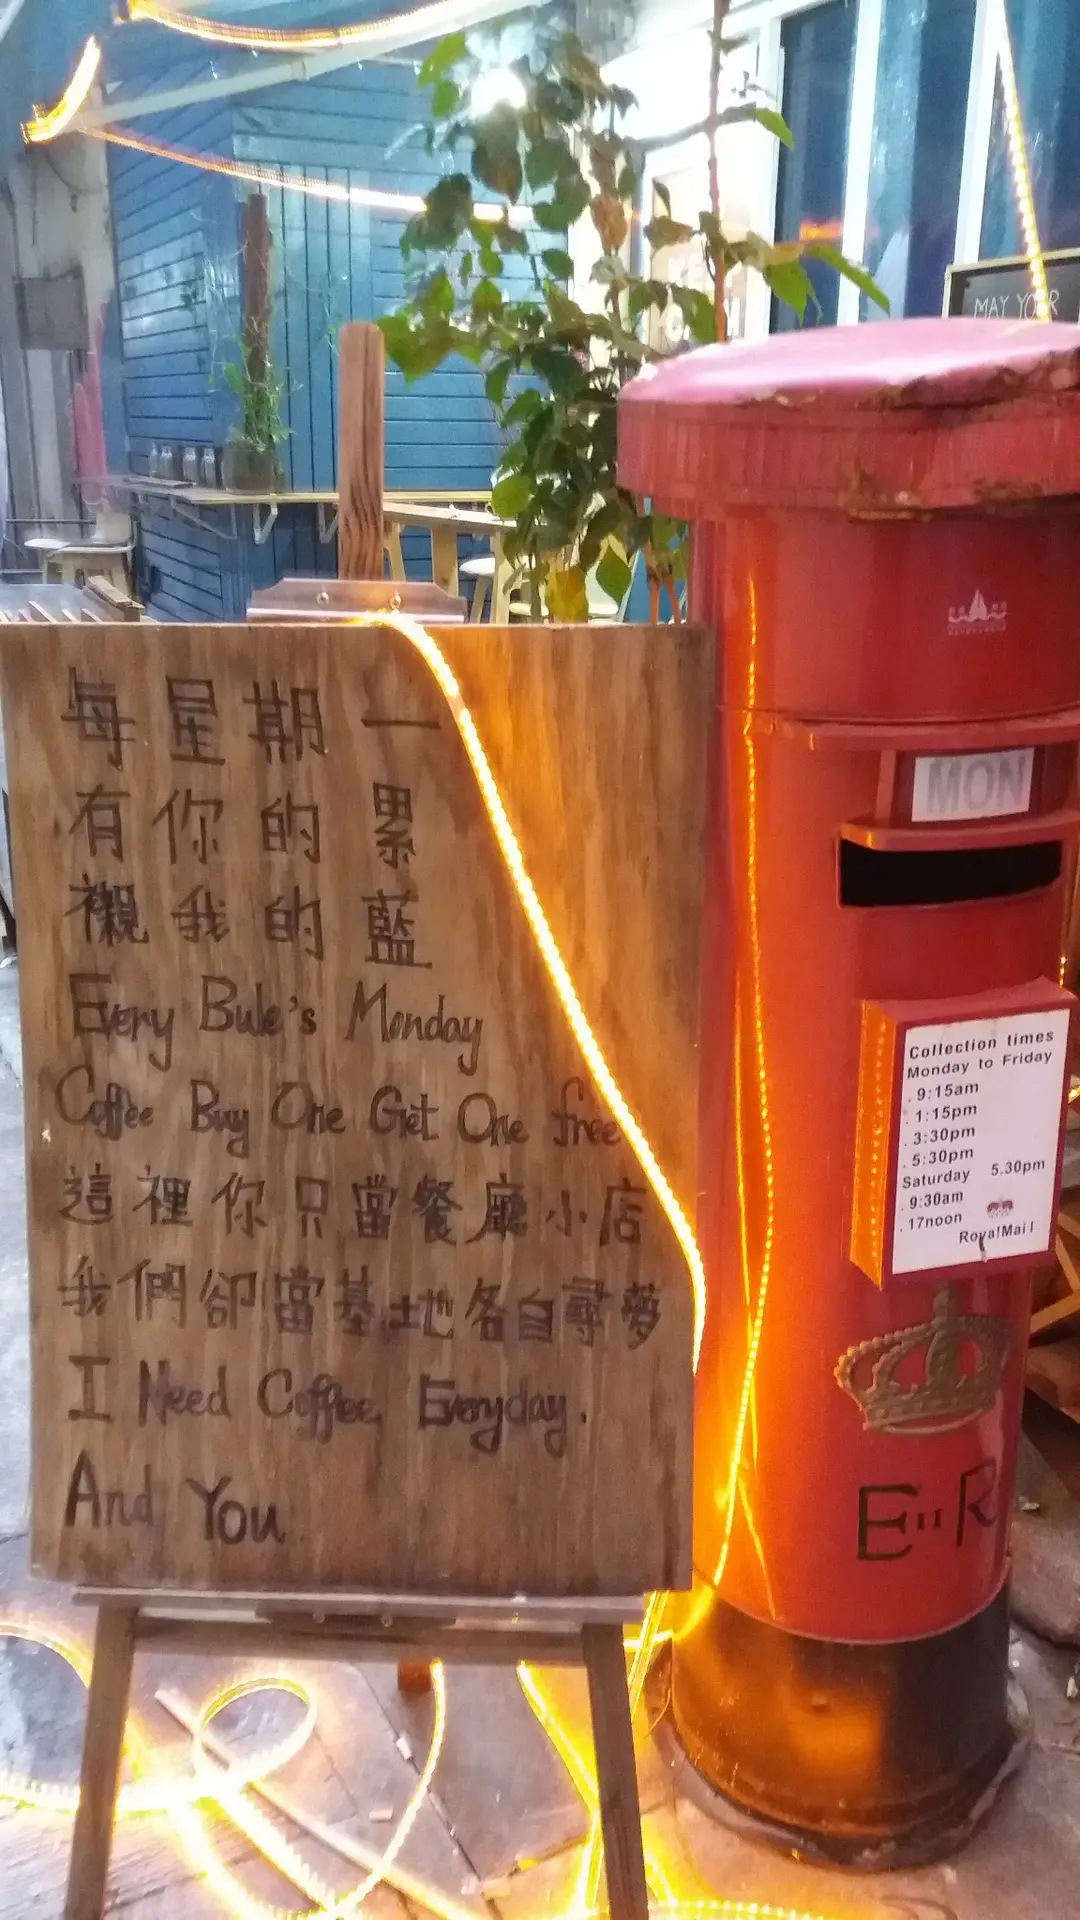 每星期一
有你的累
襯我的藍
Every Bule's Monday
Coffee Buy One Get One free
這裡你只當餐廳小店
我們卻當基地各自尋夢
I Need Coffee Everyday.
And You
MAY YOUR
MON
Collection times
Monday to Friday
. 9:15am
. 1:15pm
. 3:30pm
. 5:30pm
Saturday 5.30pm
. 9:30am
. 17noon
RoyalMail
E··R